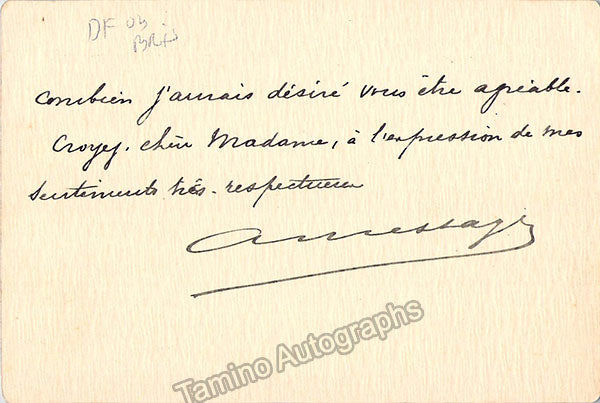 DF 03
combien j'aurais désiré vous être agréable.
Croyez, chère Madame, à l'expression de mes
sentiments très-respectueux
A Messager
Tamino Autographs